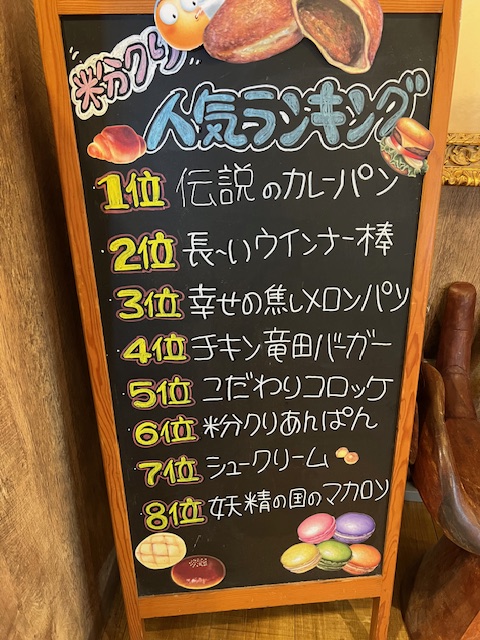 粉クリ
人気ランキング
1位 伝説のカレーパン
2位 長〜いウインナー棒
3位 幸せの焦しメロンパン
4位 チキン竜田バーガー
5位 こだわりコロッケ
6位 粉クリあんぱん
7位 シュークリーム
8位 妖精の国のマカロン